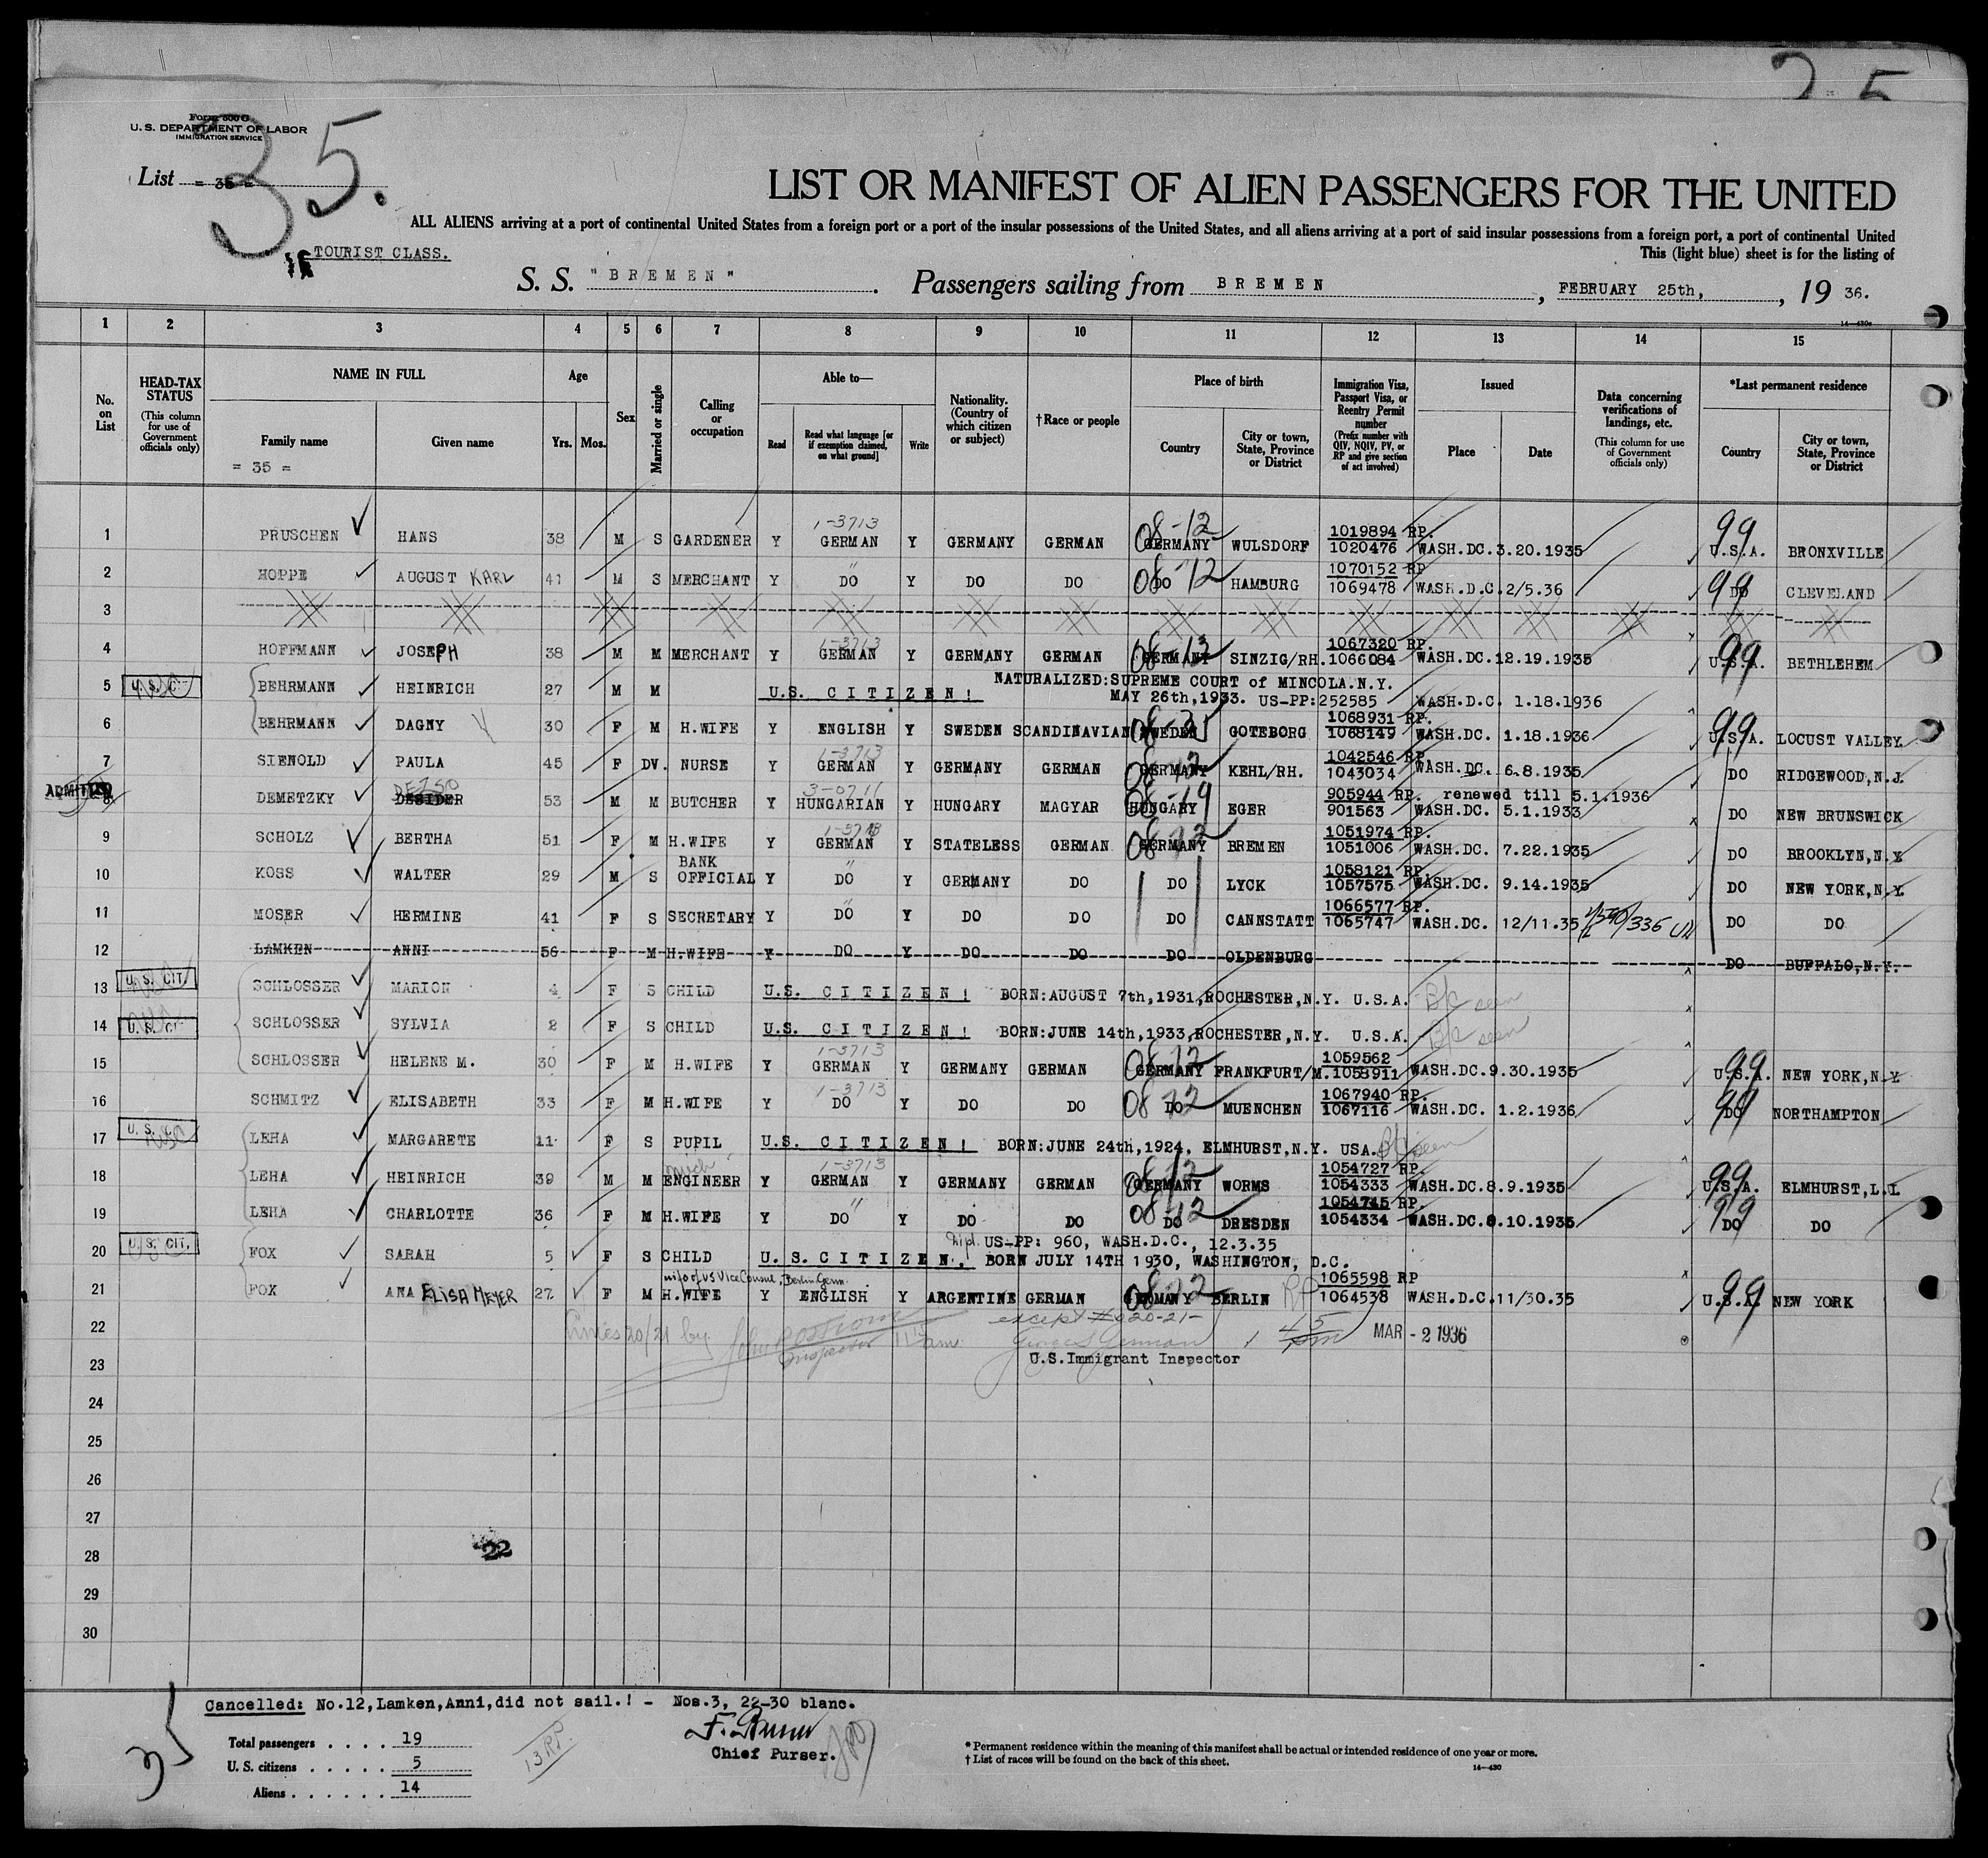 25
Form 500 G
U. S. DEPARTMENT OF LABOR
IMMIGRATION SERVICE
35.
List = 35 =
LIST OR MANIFEST OF ALIEN PASSENGERS FOR THE UNITED
ALL ALIENS arriving at a port of continental United States from a foreign port or a port of the insular possessions of the United States, and all aliens arriving at a port of said insular possessions from a foreign port, a port of continental United
TOURIST CLASS.
This (light blue) sheet is for the listing of
S. S. "BREMEN". Passengers sailing from BREMEN, FEBRUARY 25th, , 19 36.
14—430c
1 2 3 4 5 6 7 8 9 10 11 12 13 14 15
No. on List
HEAD-TAX STATUS (This column for use of Government officials only)
NAME IN FULL
Family name
Given name
Age
Yrs. Mos.
Sex
Married or single
Calling or occupation
Able to—
Read
Read what language [or if exemption claimed, on what ground]
Write
Nationality. (Country of which citizen or subject)
†Race or people
Place of birth
Country
City or town, State, Province or District
Immigration Visa, Passport Visa, or Reentry Permit number (Prefix number with QIV, NQIV, PV, or RP and give section of act involved)
Issued
Place
Date
Data concerning verifications of landings, etc. (This column for use of Government officials only)
*Last permanent residence
Country
City or town, State, Province or District
= 35 =
1 PRUSCHEN HANS 38 M S GARDENER Y 1-3713 GERMAN Y GERMANY GERMAN 08-12 GERMANY WULSDORF 1019894 RP. 1020476 WASH.DC. 3.20.1935 99 U.S.A. BRONXVILLE
2 HOPPE AUGUST KARL 41 M S MERCHANT Y " DO Y DO DO 08-12 DO HAMBURG 1070152 RP 1069478 WASH.D.C. 2/5.36 99 DO CLEVELAND
3
4 HOFFMANN JOSEPH 38 M M MERCHANT Y 1-3713 GERMAN Y GERMANY GERMAN 08-12 GERMANY SINZIG/RH. 1067320 RP. 1066084 WASH.DC. 12.19.1935 99 U.S.A. BETHLEHEM
5 U. S. C. BEHRMANN HEINRICH 27 M M U.S. CITIZEN! NATURALIZED:SUPREME COURT of MINCOLA.N.Y. MAY 26th,1933. US-PP:252585 WASH.D.C. 1.18.1936
6 BEHRMANN DAGNY 30 F M H.WIFE Y ENGLISH Y SWEDEN SCANDINAVIAN SWEDEN GOTEBORG 1068931 RP. 1068149 WASH.DC. 1.18.1936 99 U.S.A. LOCUST VALLEY
7 SIENOLD PAULA 45 F DV. NURSE Y 1-3713 GERMAN Y GERMANY GERMAN 08-12 GERMANY KEHL/RH. 1042546 RP 1043034 WASH.DC. 6.8.1935 DO RIDGEWOOD,N.J.
ADMITTED
8 DEMETZKY DEZSO DESIDER 53 M M BUTCHER Y 3-0711 HUNGARIAN Y HUNGARY MAGYAR 08-19 HUNGARY EGER 905944 RP. renewed till 5.1.1936 901563 WASH.DC. 5.1.1933 DO NEW BRUNSWICK
9 SCHOLZ BERTHA 51 F M H.WIFE Y 1-3713 GERMAN Y STATELESS GERMAN 08-12 GERMANY BREMEN 1051974 RP. 1051006 WASH.DC. 7.22.1935 DO BROOKLYN,N.Y.
10 KOSS WALTER 29 M S BANK OFFICIAL Y " DO Y GERMANY DO DO LYCK 1058121 RP. 1057575 WASH.DC. 9.14.1935 DO NEW YORK,N.Y.
11 MOSER HERMINE 41 F S SECRETARY Y " DO Y DO DO DO CANNSTATT 1066577 RP. 1065747 WASH.DC. 12/11.35 DO DO
12 LAMKEN ANNI 56 F M H.WIFE Y DO Y DO DO DO OLDENBURG DO BUFFALO,N.Y.
13 U. S. CIT. SCHLOSSER MARION 4 F S CHILD U.S. CITIZEN! BORN:AUGUST 7th,1931,ROCHESTER,N.Y. U.S.A. B/C seen
14 U. S. C. SCHLOSSER SYLVIA 2 F S CHILD U.S. CITIZEN! BORN:JUNE 14th,1933,ROCHESTER,N.Y. U.S.A. B/C seen
15 SCHLOSSER HELENE M. 30 F M H.WIFE Y 1-3713 GERMAN Y GERMANY GERMAN 08-12 GERMANY FRANKFURT/M. 1059562 1058911 WASH.DC. 9.30.1935 99 U.S.A. NEW YORK,N.Y.
16 SCHMITZ ELISABETH 33 F M H.WIFE Y 1-3713 DO Y DO DO 08-12 DO MUENCHEN 1067940 RP. 1067116 WASH.DC. 1.2.1936 99 DO NORTHAMPTON
17 U. S. C. LEHA MARGARETE 11 F S PUPIL U.S. CITIZEN! BORN:JUNE 24th,1924, ELMHURST,N.Y. USA. B/C seen
18 LEHA HEINRICH 39 M M ENGINEER Y 1-3713 GERMAN Y GERMANY GERMAN 08-12 GERMANY WORMS 1054727 RP. 1054333 WASH.DC. 8.9.1935 99 U.S.A. ELMHURST,L.I.
19 LEHA CHARLOTTE 36 F M H.WIFE Y " DO Y DO DO 08-12 DO DRESDEN 1054745 RP 1054334 WASH.DC. 8.10.1935 99 DO DO
20 U. S. CIT. FOX SARAH 5 F S CHILD U.S.CITIZEN, Dipl. US-PP: 960, WASH.D.C., 12.3.35 BORN JULY 14TH 1930, WASHINGTON, D.C.
21 FOX ANA ELISA MEYER 27 F M wife of US Vice Consul, Berlin Germ. H.WIFE Y ENGLISH Y ARGENTINE GERMAN 08-12 GERMANY BERLIN 1065598 RP 1064538 WASH.D.C. 11/30.35 99 U.S.A. NEW YORK
22 20/21 by Inspector except # 20-21- 1 45 pm MAR - 2 1936
23 U.S.Immigrant Inspector
24
25
26
27
28 22
29
30
Cancelled: No.12,Lamken,Anni,did not sail.! - Nos.3, 22-30 blanc.
Total passengers . . . . 19
U. S. citizens . . . . . 5
Aliens . . . . . . 14
35
13 RP.
Chief Purser.
* Permanent residence within the meaning of this manifest shall be actual or intended residence of one year or more.
† List of races will be found on the back of this sheet.
14—430